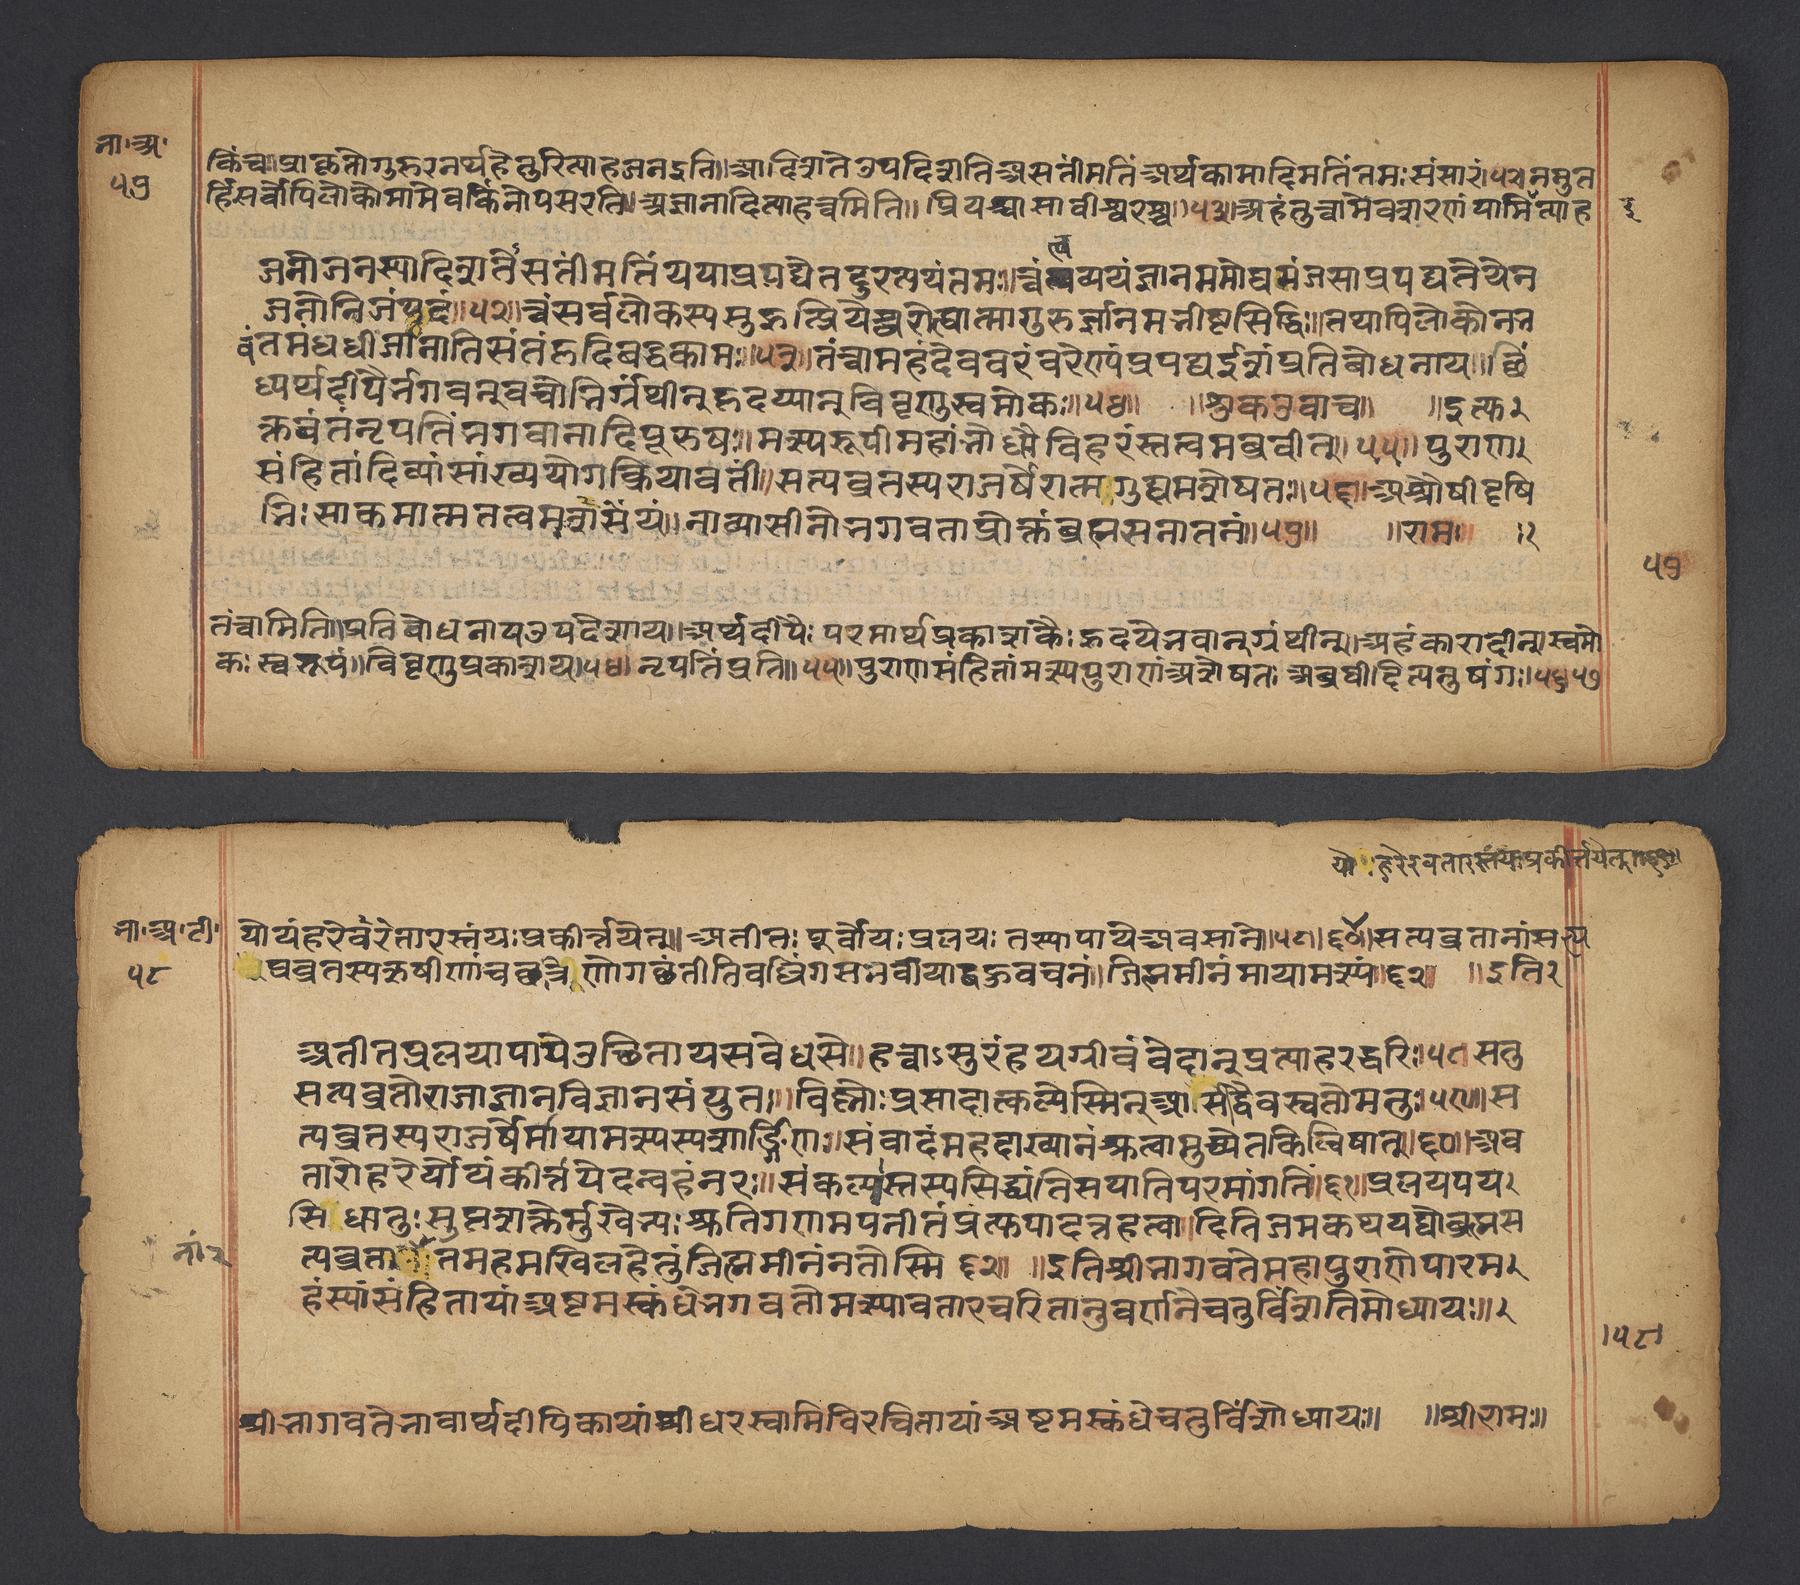 भा॰अ॰
५७
किंच॥प्राकृतोगुरुरनर्थहेतुरित्याहजनइति॥आदिशतेउपदिशतिअसतींमतिंअर्थकामादिमतिंतमःसंसारं॥५१॥ननुत
र्हिसर्वोपिलोकोमामेवकिंनोपसरति॥अज्ञानादित्याहत्वमिति॥प्रियश्चासावीश्वरश्च॥५२॥अहंतुत्वामेवशरणंयामित्याह
जनोजनस्यादिशतेसतींमतिंययाप्रपद्येतदुरत्ययंतमः॥त्वंत्वव्ययंज्ञानममोघमंजसाप्रपद्यतेयेन
जनोनिजंपदं॥५१॥त्वंसर्वलोकस्यसुहृत्प्रियेश्वरोह्यात्मागुरुर्ज्ञानमभीष्टसिद्धिः॥तथापिलोकोनभ
वंतमंधधीर्जानातिसंतंहृदिबद्धकामः॥५३॥तंत्वामहंदेववरंवरेण्यंप्रपद्यईशंप्रतिबोधनाय॥छिं
ध्यर्थदीपैर्भगवन्वचोभिर्ग्रंथीन्हृदय्यान्विवृणुस्वमोकः॥५४॥ ॥शुकउवाच॥ ॥इत्यु
क्तवंतंनृपतिंभगवानादिपूरुषः॥मत्स्यरूपीमहांभोधौविहरंस्तत्वमब्रवीत्॥५५॥पुराण
संहितांदिव्यांसांख्ययोगक्रियावतीं॥सत्यव्रतस्यराजर्षेरात्मगुह्यमशेषतः॥५६॥अश्रौषीदृषि
भिःसाकमात्मतत्वमसंशयं॥नाव्यासीनोभगवताप्रोक्तंब्रह्मसनातनं॥५७॥ ॥राम॥
५७
तंत्वामिति॥प्रतिबोधनायउपदेशाय॥अर्थदीपैःपरमार्थप्रकाशकैःहृदयेभवान्ग्रंथीन्॥अहंकारादीन्॥स्वमो
कःस्वरूपं॥विवृणुप्रकाशय॥५४॥नृपतिंप्रति॥५५॥पुराणसंहितांमत्स्यपुराणंअशेषतःअब्रवीदित्यनुषंगः॥५६॥५७
हरेरवतारस्तंयःप्रकीर्त्तयेत्
भा॰अ॰टी॰
५८
योयंहरेरवतारस्तंयःप्रकीर्त्तयेत्॥अतीतःपूर्वोयःप्रलयःतस्यापायेअवसाने॥५८॥६०॥सत्यव्रतानांसत्य
जिह्ममीनंमायामत्स्यं॥६२॥ ॥इति
अतीतप्रलयापायेउत्थितायसवेधसे॥हत्वाऽसुरंहयग्रीवंवेदान्प्रत्याहरद्धरिः॥५८सतु
सत्यव्रतोराजाज्ञानविज्ञानसंयुतः॥विष्णोःप्रसादात्कल्पेस्मिन्आसीद्वैवस्वतोमनुः॥५९॥स
त्यव्रतस्यराजर्षेर्मायामत्स्यस्यशार्ङ्गिणः॥संवादंमहदाख्यानंश्रुत्वामुच्येतकिल्विषात्॥६०॥अव
तारोहरेर्योयंकीर्त्तयेदन्वहंनरः॥संकल्पास्तस्यसिद्ध्यंतिसयातिपरमांगतिं॥६१॥प्रलयपय
सिधातुःसुप्तशक्तेर्मुखेभ्यःश्रुतिगणमपनीतंप्रत्युपादत्तहत्वा॥दितिजमकथयद्योब्रह्मस
त्यव्रतानांतमहमखिलहेतुंजिह्ममीनंनतोस्मि६२॥ ॥इतिश्रीभागवतेमहापुराणेपारम
हंस्यांसंहितायांअष्टमस्कंधेभगवतोमत्स्यावतारचरितानुवर्णनेचतुर्विंशतिमोध्यायः॥
।५८।
श्रीभागवतेभावार्थदीपिकायांश्रीधरस्वामिविरचितायांअष्टमस्कंधेचतुर्विंशोध्यायः॥ ॥श्रीरामः॥